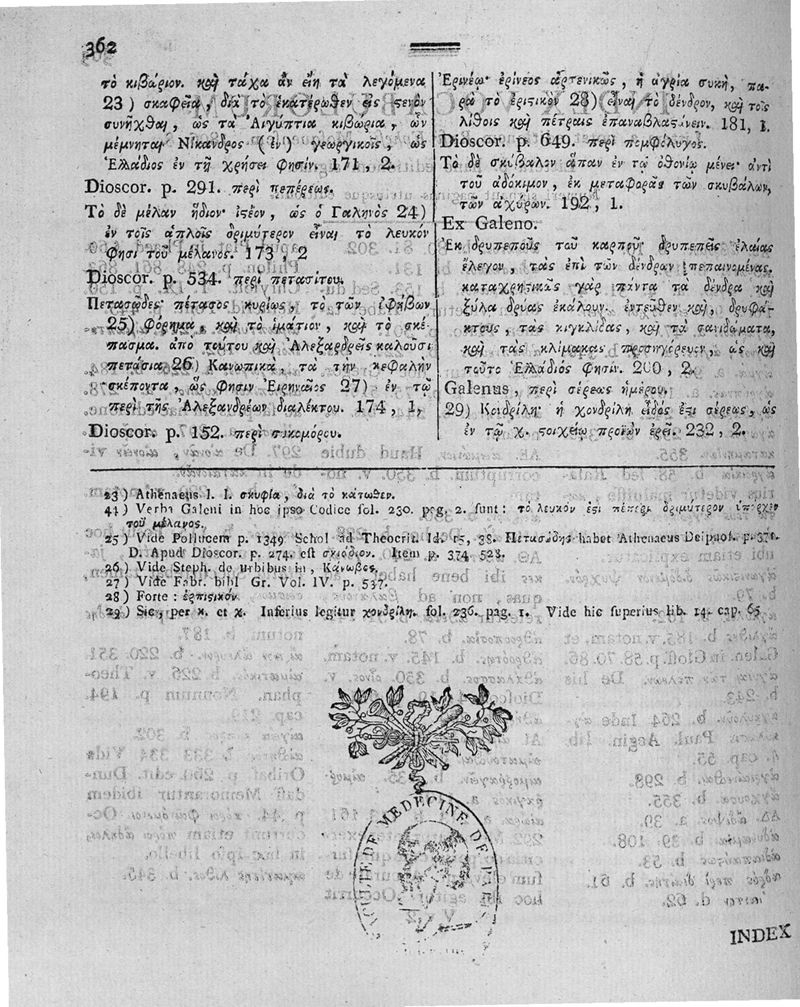 362
τὸ κιβάριον. καὶ τάχα ἂν εἴη τὰ λεγόμενα
23) σκαφεῖα, διὰ τὸ ἑκατέρωθεν εἰς στενὸν
συνῆχθαι, ὡς τὰ Αἰγύπτια κιβώρια, ὧν
μέμνηται Νίκανδρος (ἐν) γεωργικοῖς, ὡς
Ἑλλάδιος ἐν τῇ χρήσει φησίν. 171, 2.
Dioscor. p. 291. περὶ πεπέρεως.
Τὸ δὲ μέλαν ἥδιον· ἰστέον, ὡς ὁ Γαληνὸς 24)
ἐν τοῖς ἁπλοῖς δριμύτερον εἶναι τὸ λευκόν
φησι τοῦ μέλανος. 173, 2
Dioscor. p. 534. περὶ πετασίτου.
Πετασῶδες· πέτασος κυρίως, τὸ τῶν ἐφήβων
25) φόρημα, καὶ τὸ ἱμάτιον, καὶ τὸ σκέ-
πασμα. ἀπὸ τούτου καὶ Ἀλεξαρδρεῖς καλοῦσι
πετάσια 26) Κανωπικὰ, τὰ τὴν κεφαλὴν
σκέποντα, ὥς φησιν Εἰρηναῖος 27) ἐν τῷ
περὶ τῆς Ἀλεξανδρέων διαλέκτου. 174, 1,
Dioscor. p. 152. περὶ συκομόρου.
Ἐρινέῳ· ἐρίνεος ἀρτενικῶς, ἡ ἀγρία συκῆ, πα-
ρὰ τὸ ἐριστικὸν 28) εἶναι τὸ δένδρον, καὶ τοῖς
λίθοις καὶ πέτραις ἐπαναβλαστάνειν. 181, 1.
Dioscor. p. 649. περὶ πομφόλυγος.
Τὸ δὲ σκύβαλον ἅπαν ἐν τῷ ὀθονίῳ μένει· ἀντὶ
τοῦ ἀδόκιμον, ἐκ μεταφορᾶς τῶν σκυβάλων,
τῶν ἀχύρων. 192, 1.
Ex Galeno.
Ἐκ δρυπεποῦς τοῦ καρποῦ· δρυπεπεῖς ἐλαίας
ἔλεγον, τὰς ἐπὶ τῶν δένδρων πεπαινομένας.
καταχρηστικῶς γὰρ πάντα τὰ δένδρα καὶ
ξύλα δρύας ἐκάλουν. ἐντεῦθεν καὶ, δρυφά-
κτους, τὰς κιγκλίδας, καὶ τὰ σανιδώματα,
καὶ τὰς κλίμακας προσηγόρευον, ὡς καὶ
τοῦτο Ἑλλάδιός φησιν. 200, 2.
Galenus, περὶ σέρεως ἡμέρου.
29) Κοιδρίλη· ἡ χονδρίλη εἶδός ἐστι σέρεως, ὡς
ἐν τῷ χ. στοιχείῳ προϊὼν ἐρεῖ. 232, 2.
23) Athenaeus l. l. σκυφία, διὰ τὸ κάτωθεν.
44) Verba Galeni in hoc ipso Codice fol. 230. pag. 2. sunt: τὸ λευκόν ἐστι πέπερι δριμύτερον ὑπάρχει
τοῦ μέλανος.
25) Vide Pollucem p. 1349 Schol ad Theocrit. Id. 15, 38. Πετασώδης habet Athenaeus Deipnos. p. 370.
D. Apud Dioscor. p. 274. est σκιάδιον. Item p. 374. 528.
26) Vide Steph. de urbibus in, Κάνωβος.
27) Vide Fabr. bibl Gr. Vol. IV. p. 537.
28) Forte: ἑρπιστικόν.
29) Sic, per κ. et χ. Inferius legitur χονδρίλη. fol. 236. pag. 1. Vide hic superius lib. 14. cap. 65
DE MEDECINE DE
INDEX